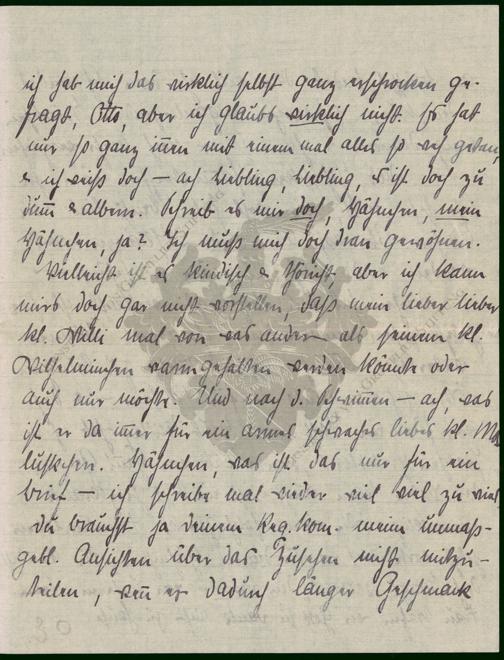 ich hab mich das wirklich selbst ganz erschrocken ge-
fragt, Otto, aber ich glaubs wirklich nicht. Es hat
mir so ganz innen mit einem mal alles so weh getan,
& ich weiß doch – ach Liebling, Liebling, 's ist doch zu
dumm & albern. Schreib es mir doch, Hähnchen, mein
Hähnchen, ja? Ich muß mich doch dran gewöhnen.
Vielleicht ist es kindisch & thöricht, aber ich kann
mirs doch gar nicht vorstellen, daß mein lieber lieber
kl. Willi mal von was anderm als seinem kl.
Wilhelminchen warmgehalten werden könnte oder
auch nur möchte. Und nach d. Schwimmen – ach, was
ist er da immer für ein armes schwaches liebes kl.
Hähnchen, was ist das nur für ein
Brief – ich schreibe mal wieder viel viel zu viel
du brauchst ja deinem Reg.kom. meine unmaß-
gebl. Ansichten über das Zusehen nicht mitzu-
teilen, wenn er dadurch länger Geschmack